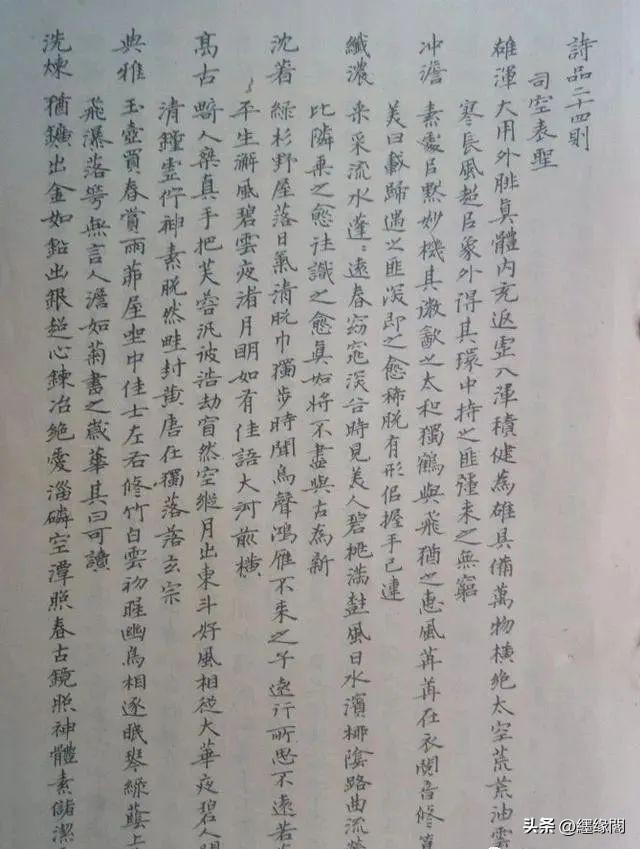 詩品二十四則
司空表聖
雄渾 大用外腓真體內充返虛入渾積健為雄具備萬物橫絕太空荒荒油雲
寒長風超㠯象外得其環中持之匪彊来之無窮
冲澹 素處㠯黙妙機其微飲之太和獨鶴與飛猶之惠風苒苒在衣閱音修篁
美曰載歸遇之匪深即之愈稀脫有形侣握手已違
纖濃 采采流水蓬蓬遠春窈窕深谷時見美人碧桃滿樹風日水濱柳陰路曲流鶯
比隣乗之愈往識之愈真如將不盡與古為新
沈着 綠杉野屋落日氣清脫巾獨步時聞鳥聲鴻雁不来之子遠行所思不遠若
平生海風碧雲夜渚月明如有佳語大河前橫
高古 畸人乘真手把芙蓉汎彼浩劫窅然空縱月出東斗好風相從大華夜碧人聞
清鐘虛佇神素脫然畦封黄唐在獨落落玄宗
典雅 玉壺買春賞雨茆屋坐中佳士左右修竹白雲初晴幽鳥相逐眠琴綠蔭上
飛瀑落花無言人澹如菊書之歲華其曰可讀
洗煉 猶鑛出金如鉛出銀超心鍊冶絶愛淄磷空潭照春古鏡照神體素儲潔
头条 @纆缘閣